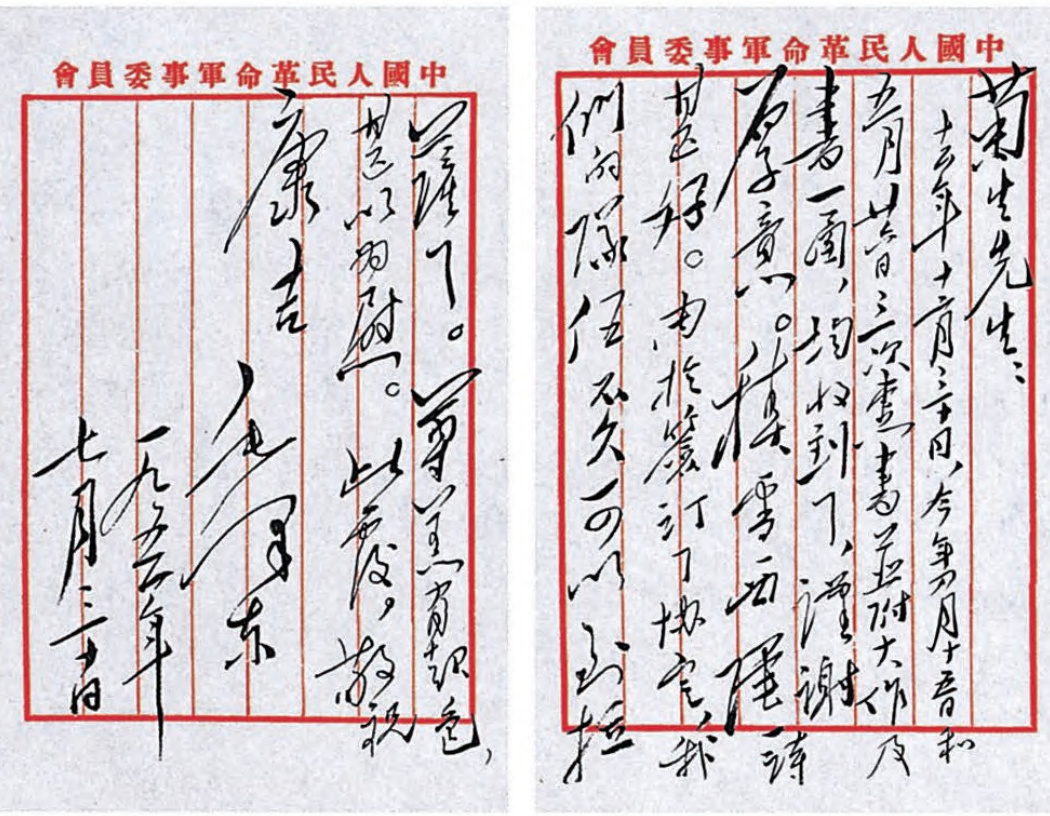 中國人民革命軍事委員會
菊生先生：
去年十二月三十日，今年四月十五日和
五月廿六日三次惠書並附大作及
書一函，均收到了，謹謝
厚意。積雪西陲一詩
甚好。由於簽訂了協定，我
們的隊伍不久可以到拉
中國人民革命軍事委員會
薩了。尊恙有起色，
甚以為慰。此復，敬祝
康吉
毛澤東
一九五一年
七月三十日